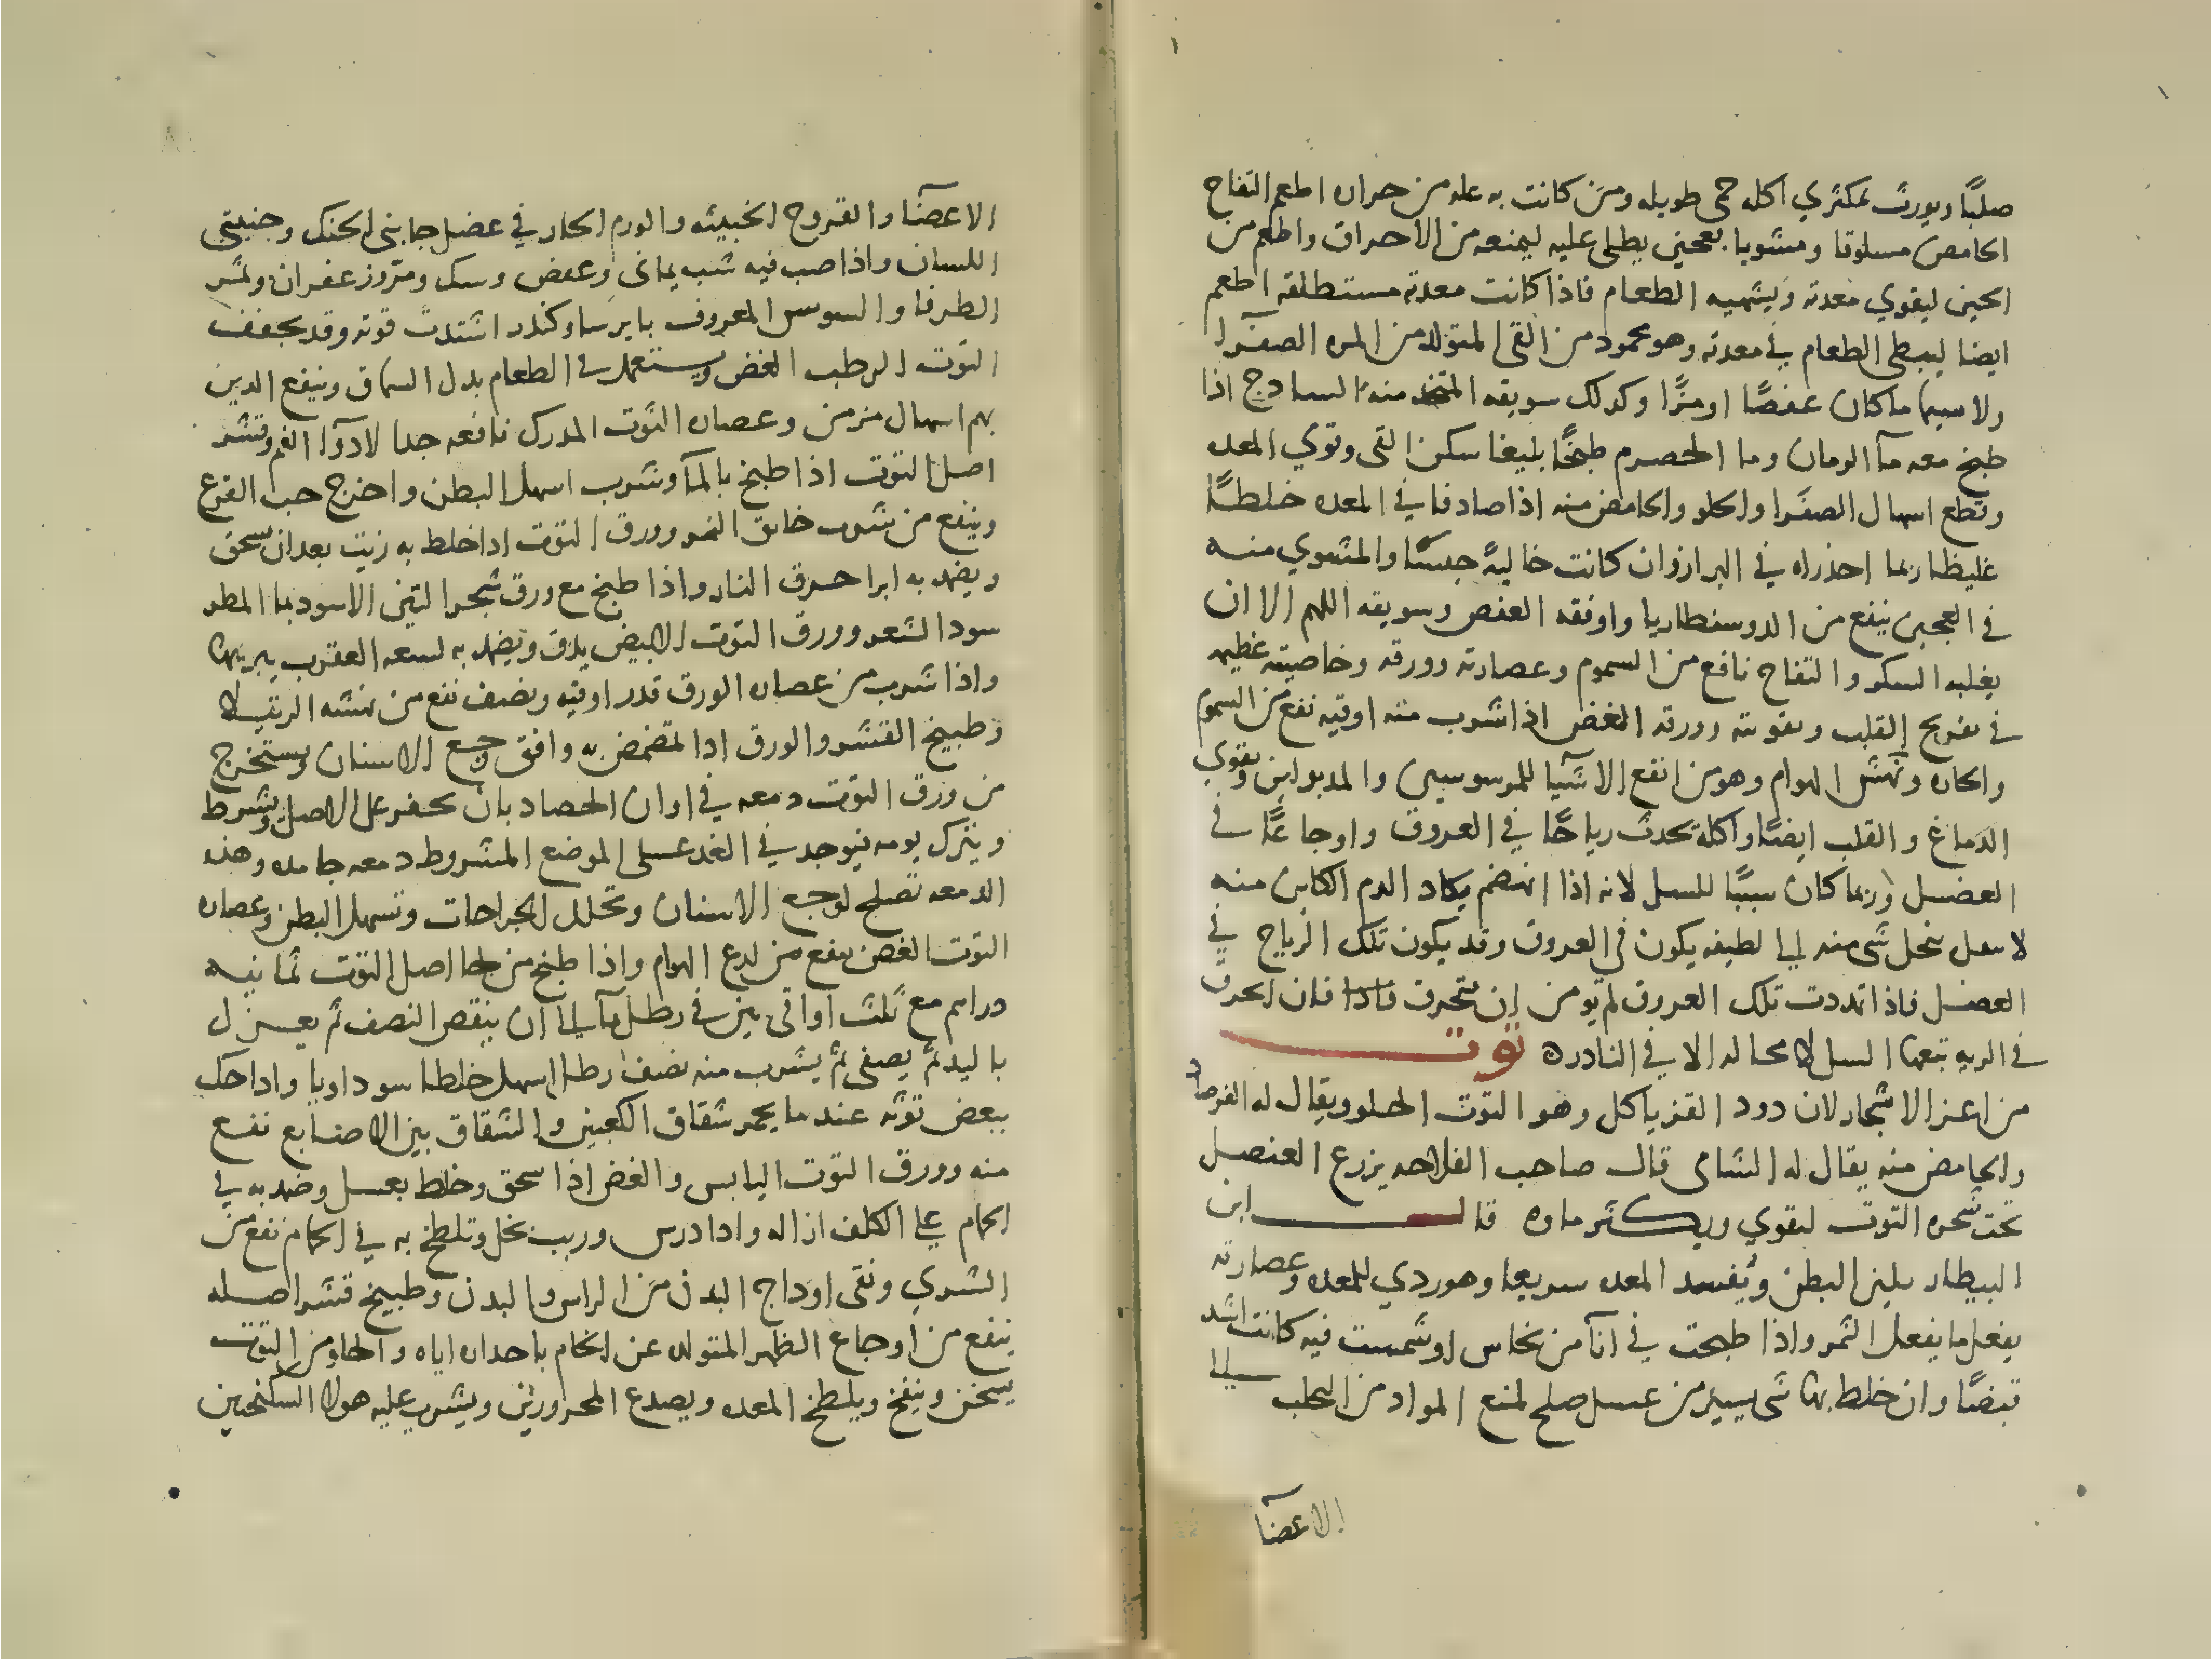 صلبًا ويورث لمكثري اكله حمى طويله ومن كانت به عله من حراره اطعم التفاح
الحامض مسلوقا ومشويا بعجين يطلى عليه ليمنعه من الاحراق واطعم من
الحين ليقوي معدته ويشهيه الطعام فاذا كانت معدته مستطلقه اطعم
ايضا ليبطى الطعام في معدته وهو محمود من القى المتولد من المره الصفرا
ولا سيما ماكان عفصًا او مزًا وكذلك سويقه المتخذ منه الساذج اذا
طبخ معه مآ الرمان وما الحصرم طبخًا بليغا سكن القى وقوي المعده
وقطع اسهال الصفرا والحلو والحامض منه اذا صادفا في المعده خلطًا
غليظا ربما احدراه في البراز وان كانت خاليه حبسًا والمشوي منه
في العجين ينفع من الدوسنطاريا واوفقه العفص وسويقه اللهم الا ان
يغلبه السكر والتفاح نافع من السموم وعصارته وورقه وخاصيته عظيمه
في تفريح القلب وتقويته وورقه الغض اذا شرب منه اوقيه نفع من السموم
والحاره ونهش الهوام وهو من انفع الاشيا للموسوسين والمدبولين ويقوي
الدماغ والقلب ايضًا واكله يحدث رياحًا في العروق واوجاعًا في
العضل وربما كان سببًا للسل لانه اذا انهضم يكاد الدم الكاين منه
لا ينحل شى منه الى لطيفه يكون في العروق وقد يكون تلك الرياح في
العضل فاذا تمددت تلك العروق لم يومن ان تنخرق فاذا فان انخرق
في الريه تبعها السل لا محاله الا في النادره توت
من اعز الاشجار لان دود القز ياكل وهو التوت الحلو ويقال له الفرصاد
والحامض منه يقال له الشامى قال صاحب الفلاحه يزرع العنصل
تحت شجره التوت ليقوي ويكثر ماوه قال ابن
البيطار يلين البطن ويفسد المعده سريعا وهو ردي للمعده وعصارته
يفعل ما يفعل الثمر واذا طبخت في انآ من نحاس او شمست فيه كانت اشد
قبضًا وان خلط بها شى يسير من عسل صلح لمنع المواد من التحلب الى
الاعضآ
الاعضآ والقروح الخبيثه والورم الحار في عضل جابنى الحنك وجنبتى
اللسان واذا صب فيه شب يمانى وعفص وسك ومر وزعفران وثمر
الطرفا والسوسن المعروف بايرسا وكندر اشتدت قوته وقد يجفف
التوت الرطب الغض ويستعمل في الطعام بدل السماق وينفع الذين
بهم اسهال مزمن وعصاره التوت المدرك نافعه جدا لادوآ الفم وقشر
اصل التوت اذا طبخ بالمآ وشرب اسهل البطن واخرج حب القرع
وينفع من شرب خانق النمر وورق التوت اذا خلط به زيت بعد ان سحق
ويضمد به ابرا حرق النار واذا طبخ مع ورق شجر التين الاسود بما المطر
سود الشعر وورق التوت الابيض يدق ويضمد به لسعه العقرب يبريها
واذا شرب من عصاره الورق قدر اوقيه ونصف نفع من نهشه الرتيلا
وطبيخ القشر والورق اذا تمضمض به وافق وجع الاسنان ويستخرج
من ورق التوت دمعه في اوان الحصاد بان يحفر على الاصل ويشرط
ويترك يومه فيوجد في الغد على الموضع المشروط دمعه جامده وهذه
الدمعه تصلح لوجع الاسنان وتحلل الجراحات وتسهل البطن وعصاره
التوت الغض ينفع من لدغ الهوام واذا طبخ من لحا اصل التوت ثمانيه
دراهم مع ثلث اواقى تين في رطل مآ الى ان ينقص النصف ثم يعزل
باليد ثم يصفى ثم يشرب منه نصف رطل اسهل خلطا سوداويا واذا حك
ببعض توته عند ما يحمر شقاق الكعبين والشقاق بين الاصابع نفع
منه وورق التوت اليابس والغض اذا سحق وخلط بعسل وضمد به في
الحمام على الكلف ازاله واذا درس وريب بخل وتلطخ به في الحمام نفع من
الشري ونقى اوداج البدن من الراس والبدن وطبيخ قشر اصله
ينفع من اوجاع الظهر المتولده عن الخام باحداره اياه والحلو من التوت
يسخن وينفخ ويلطخ المعده ويصدع المحرورين ويشرب عليه هولا السكنجبين